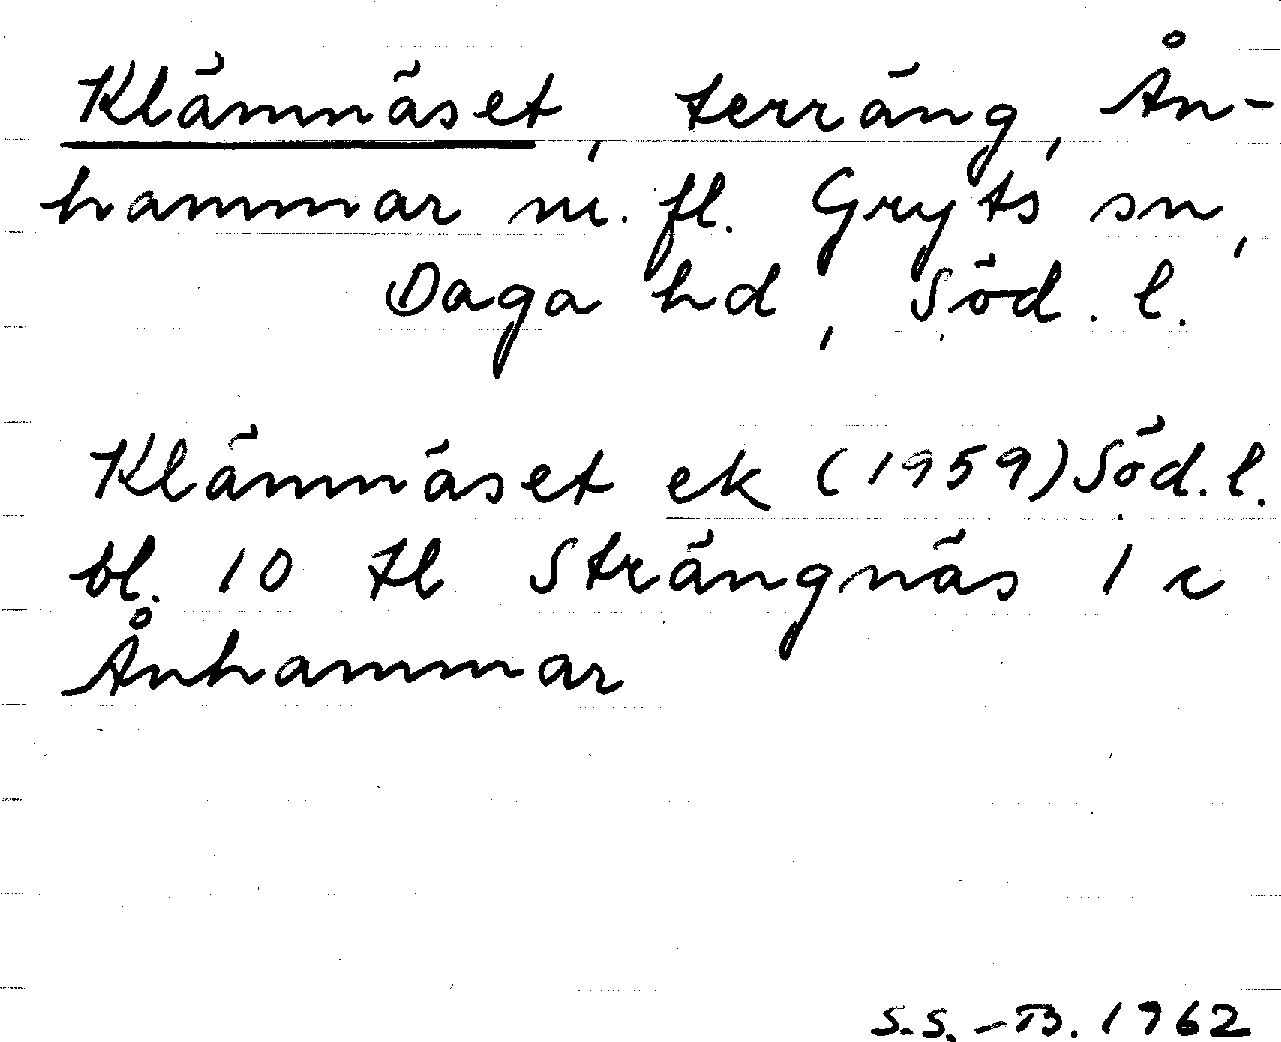 Klämnäset, terräng, Ån-
hammar m. fl. Gryts sn,
Daga hd, Söd. l.
Klämnäset ek (1959) Söd. l.
bl. 10 tl Strängnäs 1 c
Ånhammar
S.S.-B. 1962